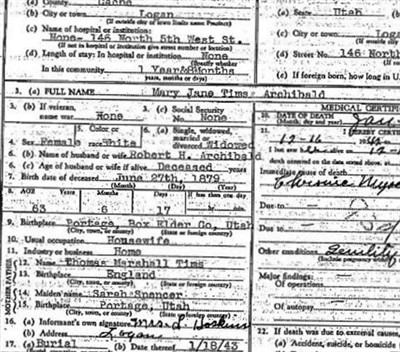 1. (a) County Cache
(b) City or town Logan
(If outside city or town limits
(c) Name of hospital or institution:
None- 146 North 5th West St.
(If not in hospital or institution give street number or location)
(d) Length of stay: In hospital or institution None
(Specify whether
In this community 1 Year &8Months
years, months or days)
(a) State Utah
(c) City or town
(d) Street No. 146 North
(e) If foreign born, how long in U.
3. (a) FULL NAME Mary Jane Tims Archibald
3. (b) If veteran, name war None
3. (c) Social Security No. None
4. Sex Female
5. Color or race White
6. (a) Single, widowed, married or divorced Widowed
6. (b) Name of husband or wife Robert H. Archibald
6. (c) Age of husband or wife if alive Deceased years
7. Birth date of deceased June 27th, 1879
(Month) (Day) (Year)
8. AGE Years Months Days If less than one day
63 6 17
9. Birthplace Portage, Box Elder Co, Utah
(City, town, or county) (State or foreign country)
10. Usual occupation Housewife
11. Industry or business Home
MOTHER FATHER
12. Name Thomas Marshall Tims
13. Birthplace England
(City, town, or county) (State or foreign country)
14. Maiden name Sarah Spencer
15. Birthplace Portage, Utah
(City, town, or county) (State or foreign country)
16. (a) Informant's own signature Mrs.
(b) Address Logan
17. (a) Burial (b) Date thereof 1/18/43
MEDICAL CERTIF
20. DATE OF DEATH
(Month, day and year) Jan
21. I HEREBY CERTIF
12-16
I last saw
death occurred on the date stated above.
Immediate cause of death
Chronic Myoc
Due to
Due to
Other conditions Senility
(Include pregnancy
Major findings:
Of operations
Of autopsy
22. If death was due to external causes,
(a) Accident, suicide, or homicide